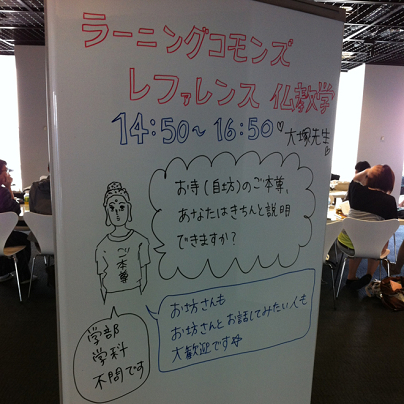 ラーニングコモンズ
レファレンス 仏教学
14:50~16:50♡
大塚先生
お寺(自坊)のご本尊、
あなたはきちんと説明
できますか?
ご本尊
お坊さんも
お坊さんとお話してみたい人も
大歓迎です
学部
学科
不問です